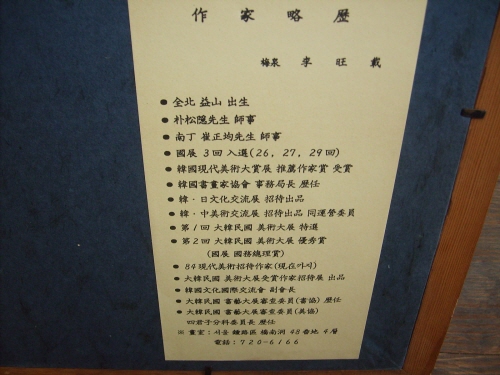 作家略歷
梅泉 李旺載
● 全北 益山 出生
● 朴松隱先生 師事
● 南丁 崔正均先生 師事
● 國展 3回 入選(26, 27, 29回)
● 韓國現代美術大賞展 推薦作家賞 受賞
● 韓國書畫家協會 事務局長 歷任
● 韓·日文化交流展 招待出品
● 韓·中美術交流展 招待出品 同運營委員
● 第1回 大韓民國 美術大展 特選
● 第2回 大韓民國 美術大展 優秀賞
(國展 國務總理賞)
● 84現代美術招待作家(現在까지)
● 大韓民國 美術大展受賞作家招待展 出品
● 韓國文化國際交流會 副會長
● 大韓民國 書藝大展審査委員(書協) 歷任
● 大韓民國 書藝大展審査委員(美協)
四君子分科委員長 歷任
※ 畫室: 서울 鍾路區 樓南洞 48番地 4層
電話: 720-6166